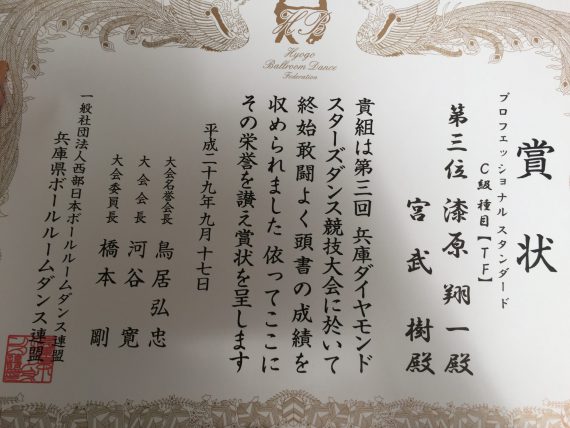 Hyogo
Ballroom Dance
Federation
賞状
プロフェッショナル スタンダード
C級 種目【TF】
第三位 漆原 翔一殿
宮武 樹殿
貴組は第三回 兵庫ダイヤモンド
スターズダンス競技大会に於いて
終始敢闘よく頭書の成績を
収められました 依ってここに
その栄誉を讃え賞状を呈します
平成二十九年九月 十七日
大会名誉会長 鳥居弘忠
大会会長 河谷 寛
大会委員長 橋本 剛
一般社団法人西部日本ボールルームダンス連盟
兵庫県ボールルームダンス連盟